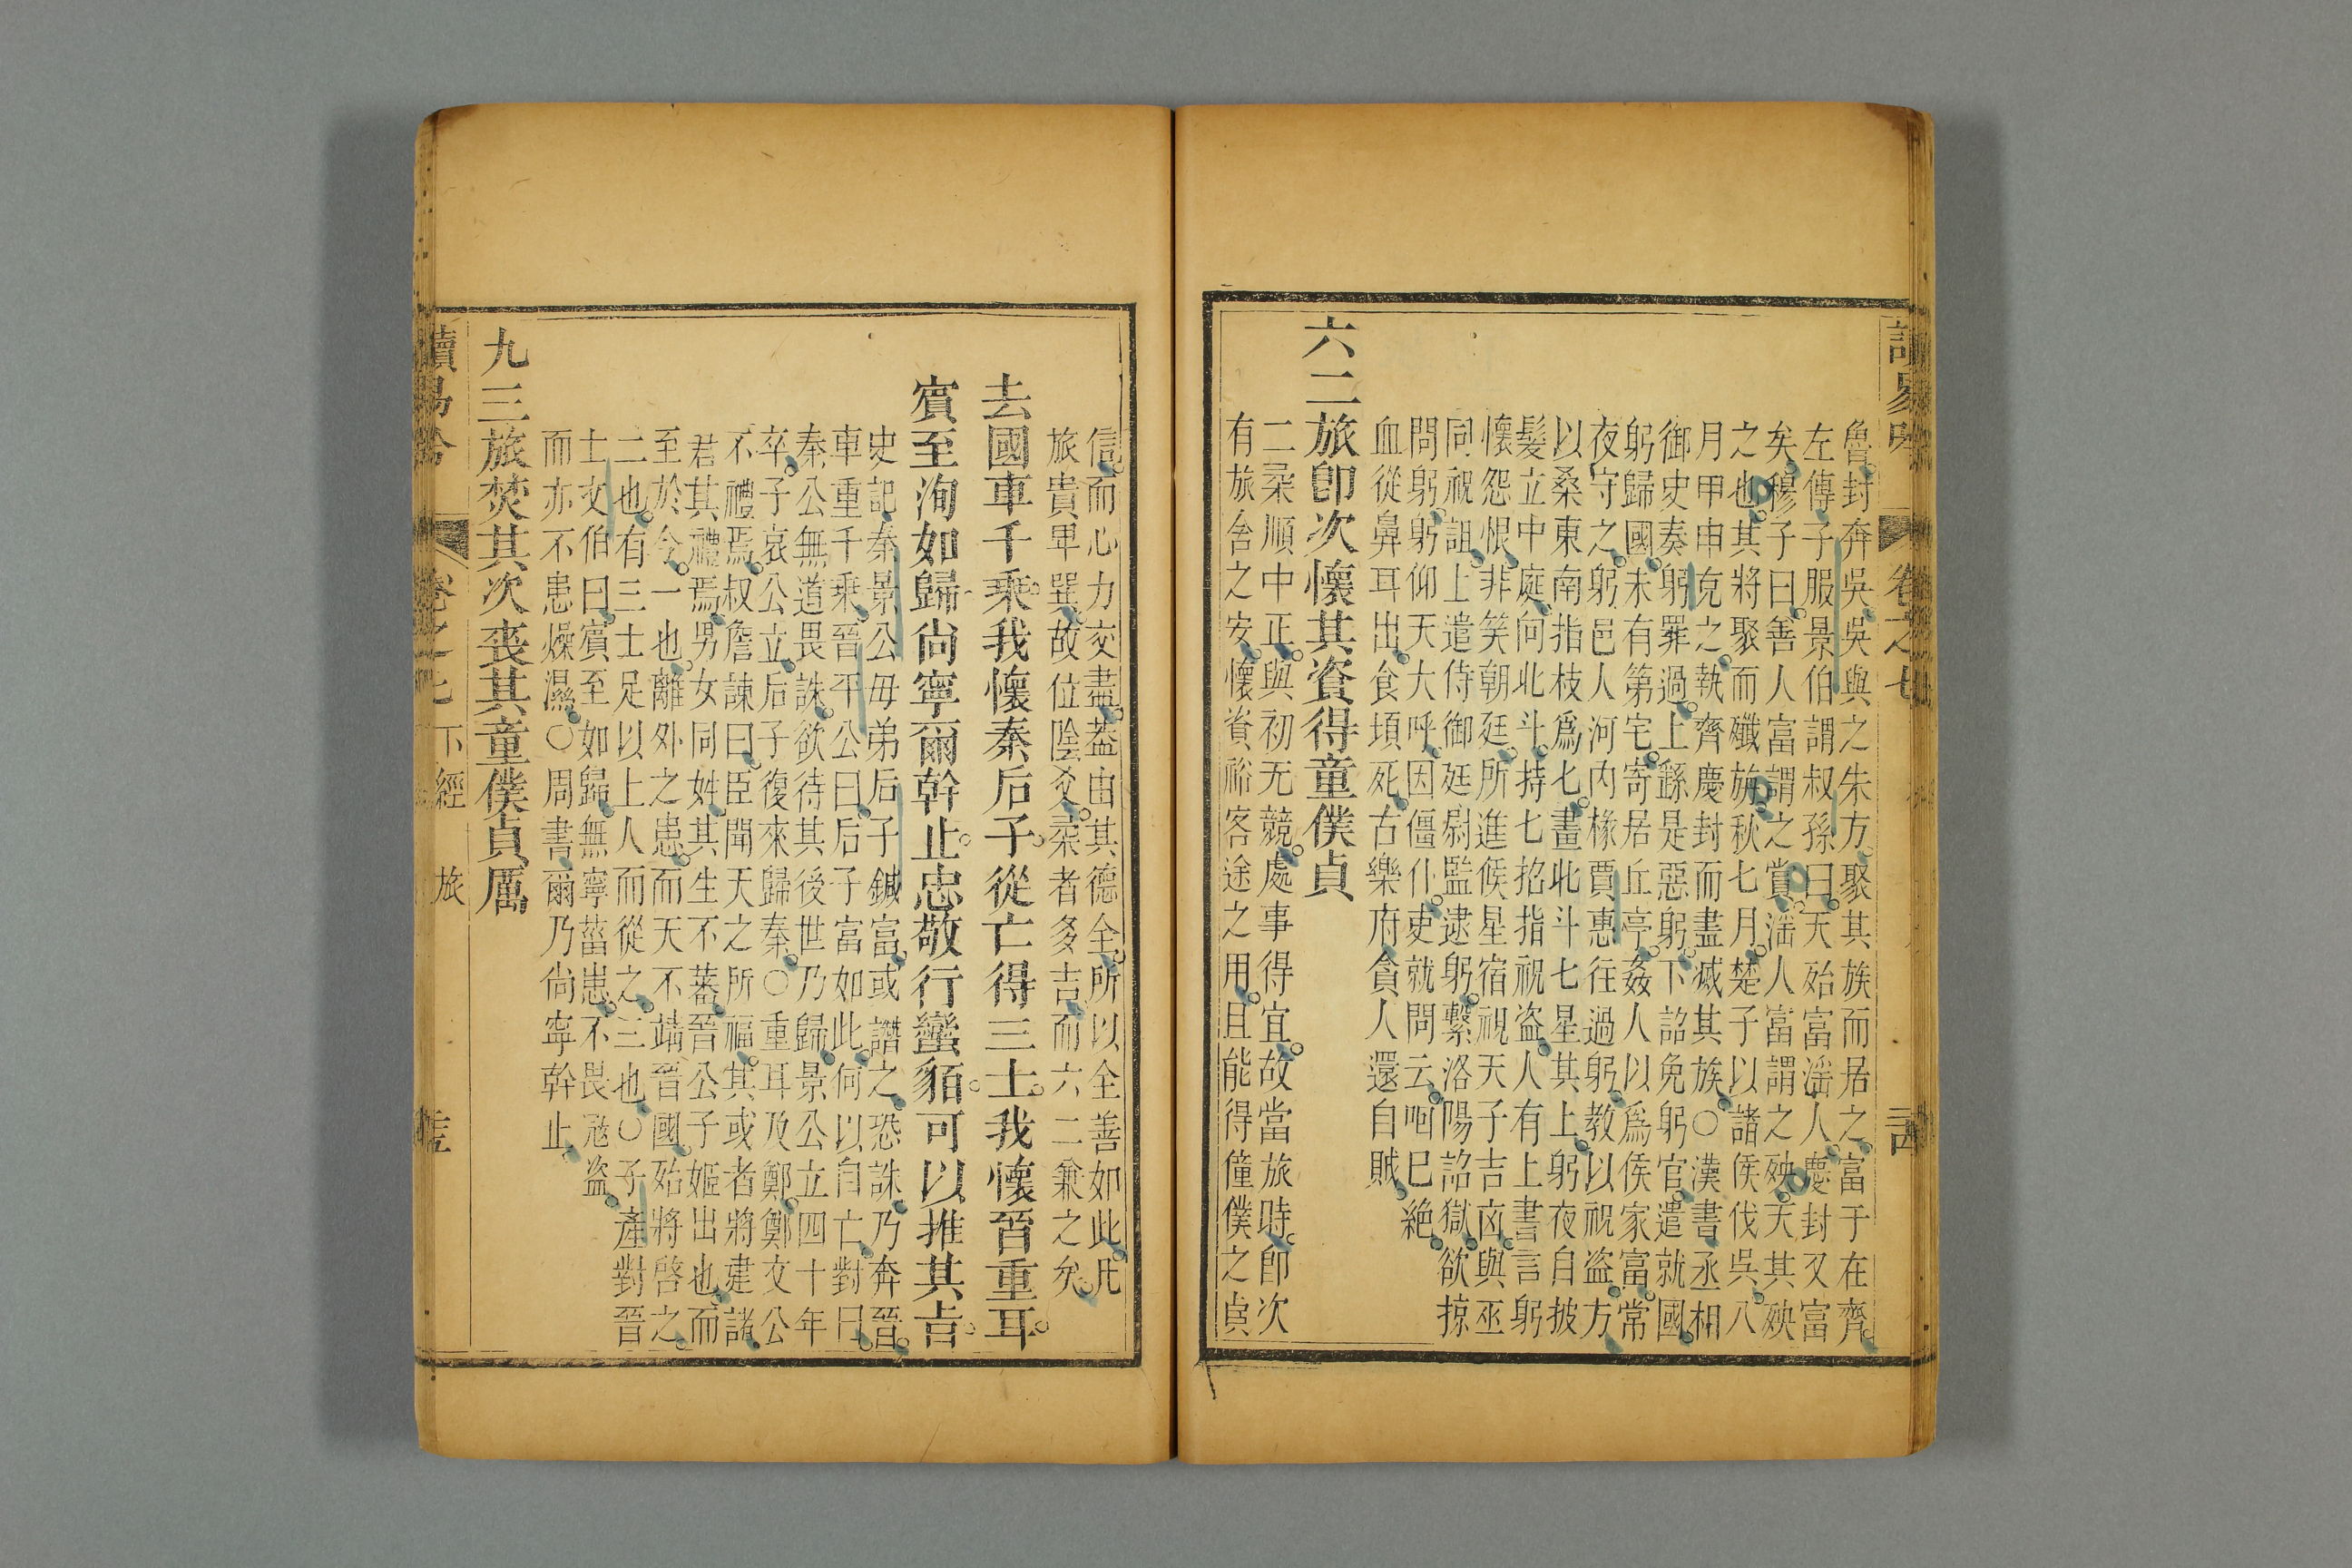 卷之七
魯封奔吳吳與之朱方聚其族而居之富于在齊
左傳子服景伯謂叔孫曰天殆富淫人慶封又富
矣穆子曰善人富謂之賞淫人富謂之殃天其殃
之也其將聚而殲旃秋七月楚子以諸侯伐吳八
月甲申克之執齊慶封而盡滅其族○漢書丞相
御史奏躬罪過上繇是惡躬下詔免躬官遣就國
躬歸國未有第宅寄居丘亭姦人以爲侯家富常
夜守之躬邑人河內掾賈惠往過躬教以祝盜方
以桑東南指枝爲匕畫北斗七星其上躬夜自披
髮立中庭向北斗持匕招指祝盜人有上書言躬
懷怨恨非笑朝廷所進候星宿視天子吉凶與巫
同祝詛上遣侍御廷尉監逮躬繫洛陽詔獄欲掠
問躬躬仰天大呼因僵仆吏就問云咽已絕
血從鼻耳出食頃死古樂府貪人還自賊
六二旅卽次懷其資得童僕貞
二柔順中正與初无競處事得宜故當旅時卽次
有旅舍之安懷資裕客途之用且能得僮僕之貞
信而心力交盡葢由其德全所以全善如此凡
旅貴卑巽故位陰爻柔者多吉而六二兼之矣
去國車千乘我懷秦后子從亡得三士我懷晉重耳
賓至洵如歸尚寧爾幹止忠敬行蠻貊可以推其吉
史記秦景公母弟后子鍼富或譖之恐誅乃奔晉
車重千乘晉平公曰后子富如此何以自亡對曰
秦公無道畏誅欲待其後世乃歸景公立四十年
卒子哀公立后子復來歸秦○重耳及鄭鄭文公
不禮焉叔詹諫曰臣聞天之所福其或者將建諸
君其禮焉男女同姓其生不蕃晉公子姬出也而
至於今一也離外之患而天不靖晉國殆將啓之
二也有三士足以上人而從之三也○子產對晉
士文伯曰賓至如歸無寧菑患不畏𡨥盜
而亦不患燥濕○周書爾乃尚寧幹止
九三旅焚其次喪其童僕貞厲
讀易 卷之七 下經 旅